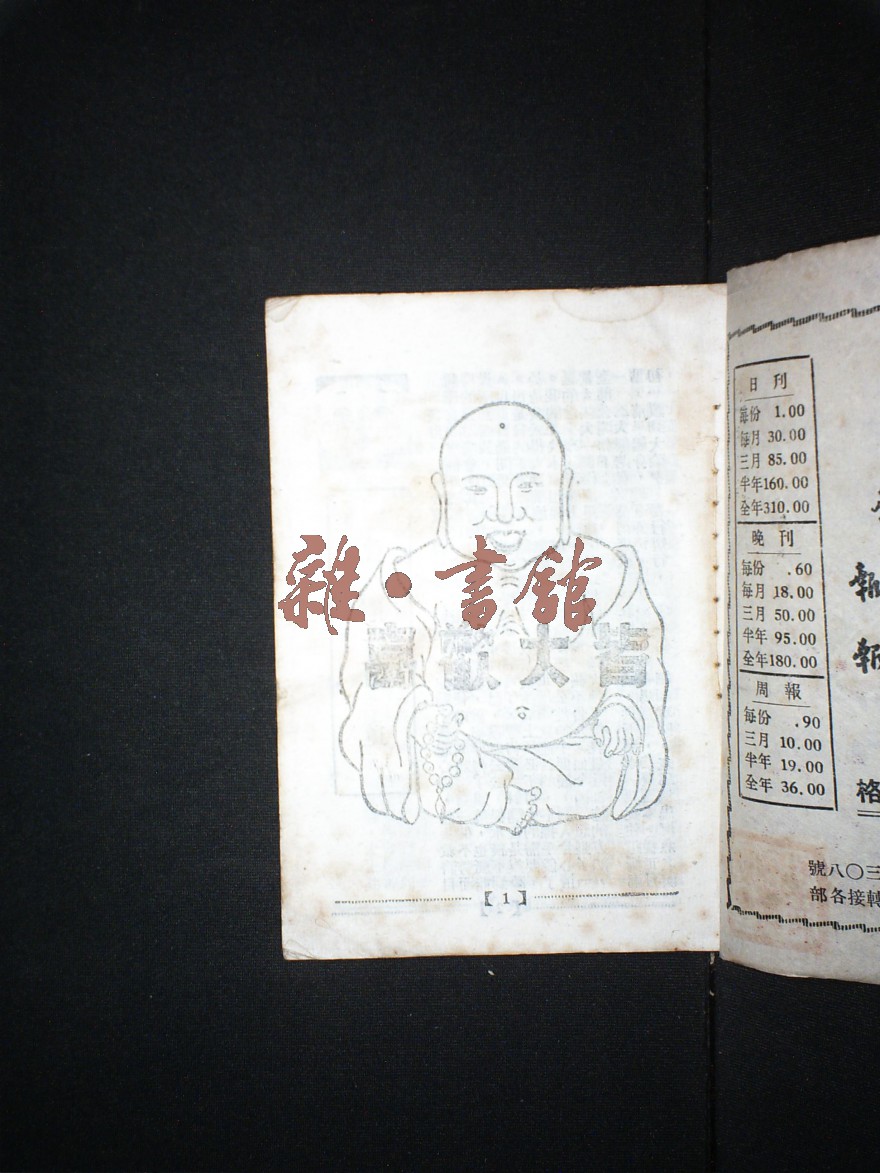 雜·書館
喜歡大皆
【1】
日刊
每份 1.00
每月 30.00
三月 85.00
半年 160.00
全年 310.00
晚刊
每份 .60
每月 18.00
三月 50.00
半年 95.00
全年 180.00
周報
每份 .90
三月 10.00
半年 19.00
全年 36.00
格
號八〇三
部各接轉